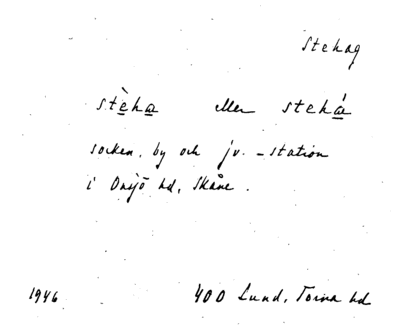 Stehag
stèha eller stehá
socken, by och jv. - station
i Onsjö hd, Skåne.
1946 400 Lund, Torna hd